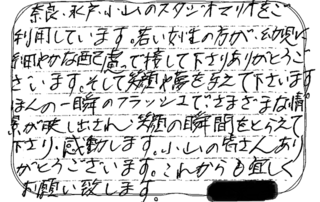 奈良、水戸、小山のスタジオマリオをご
利用しています。若い女性の方が、幼児に
細やかな配慮で接して下さりありがとうご
ざいます。そして笑顔や夢を与えて下さいます
ほんの一瞬のフラッシュでさまざまな情
景が映し出され、笑顔の瞬間をとらえて
下さり、感動します。小山の皆さんあり
がとうございます。これからも宜しく
お願い致します。